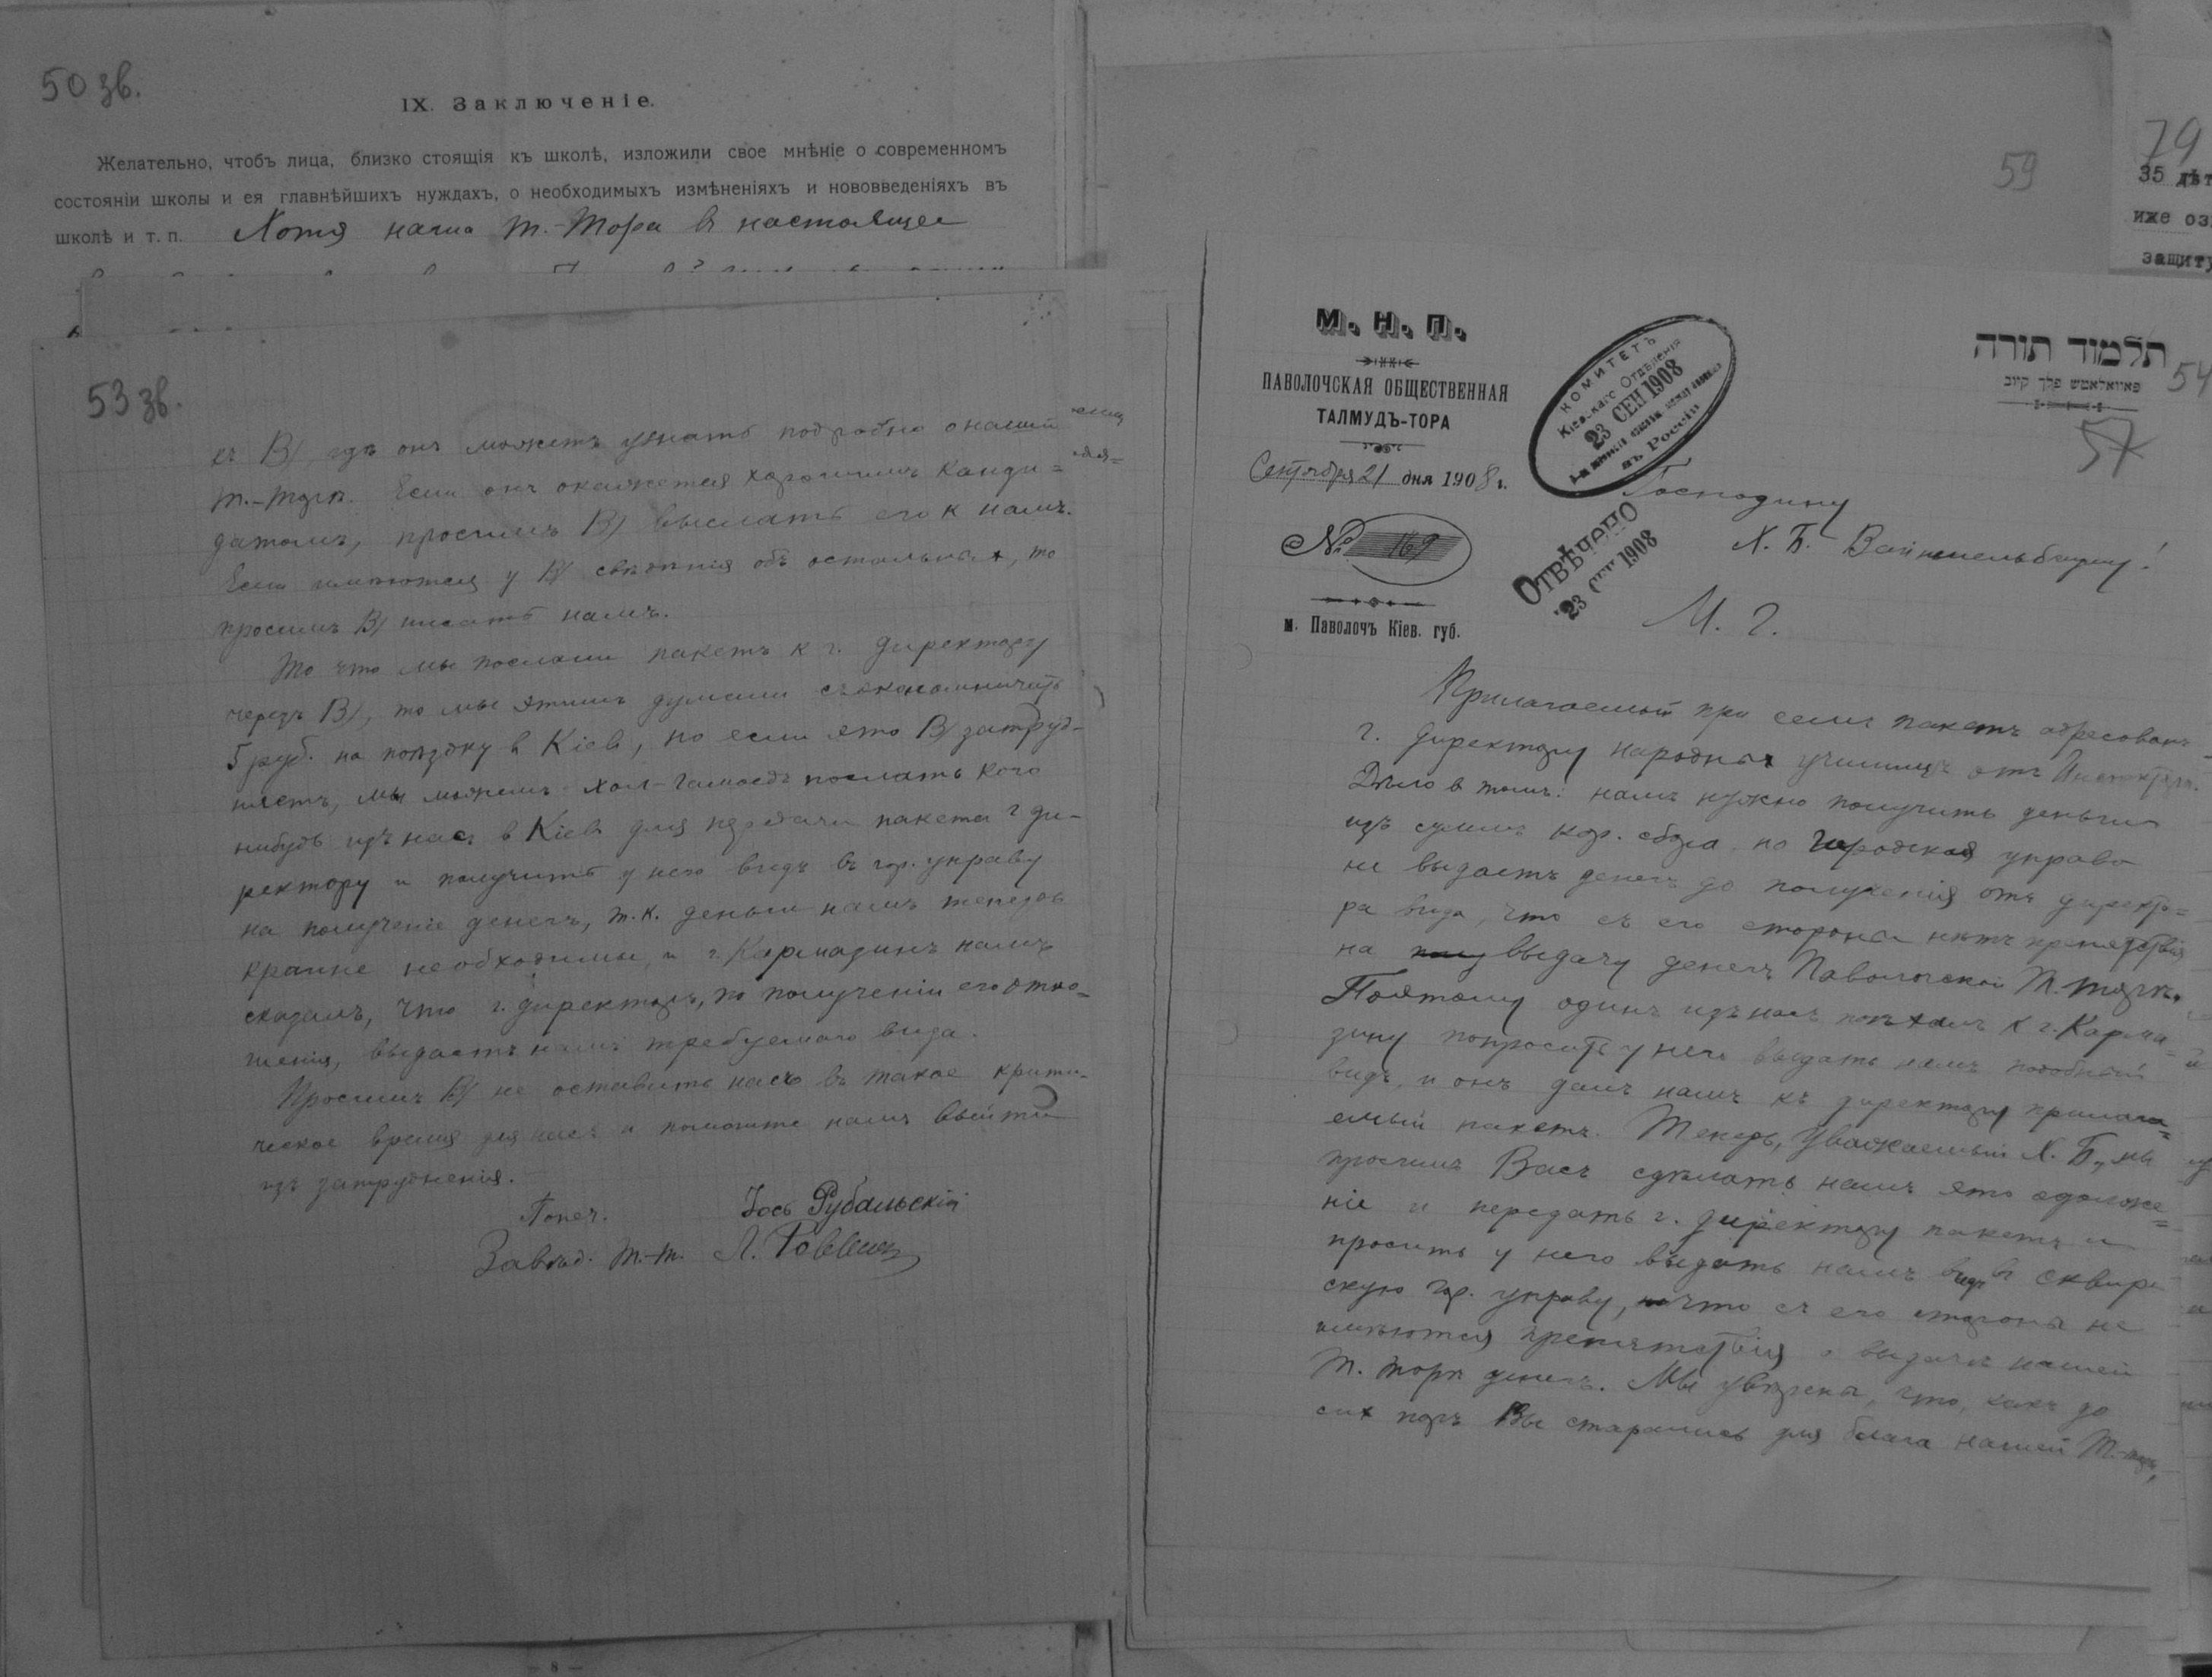 50 зв.
IX. Заключеніе.
Желательно, чтобъ лица, близко стоящія къ школѣ, изложили свое мнѣніе о современномъ
состояніи школы и ея главнѣйшихъ нуждахъ, о необходимыхъ измѣненіяхъ и нововведеніяхъ въ
школѣ и т. п. Хотя наша Т.-Тора в настоящее
53 зв.
къ В/, гдѣ онъ можетъ узнать подробно о нашей
Т.-Торѣ. Если онъ окажется хорошимъ канди=
датомъ, просимъ В/ выслать его к намъ.
Если имѣются у В/ свѣдѣнія объ остальных, то
просимъ В/ писать намъ.
То что мы послали пакетъ к г. Директору
черезъ В/, то мы этимъ думали съэкономничать
5 руб. на поѣздку в Кіев, но если это В/ затруд-
няетъ, мы можемъ Хол-Гамоедъ послать кого
нибудь изъ нас в Кіев для передачи пакета г ди-
ректору и получить у него видъ въ гор. управу
на полученіе денегъ, т.к. деньги намъ теперь
крайне необходимы, и г. Кармазинъ намъ
сказалъ, что г. директоръ, по полученіи его отно=
шенія, выдастъ намъ требуемаго вида.
Просимъ В/ не оставить насъ въ такое крити-
ческое время для насъ и помогите намъ выйти
изъ затрудненія.
Попеч. Іось Рубальскій
Завѣд. Т.-Т. Л.
59
79
35 дѣт
иже оз
защиту
М. Н. П.
ПАВОЛОЧСКАЯ ОБЩЕСТВЕННАЯ
ТАЛМУДЪ-ТОРА
Сентября 21 дня 1908 г.
№ 169
м. Паволочъ Кіев. губ.
КОМИТЕТЪ
Кіевскаго Отдѣленія
23 СЕН 1908
въ Россіи
ОТВѢЧЕНО
23 СЕН 1908
תלמוד תורה
פאוואלאטש פלך קיוב
54
57
Господину
Х. Б. Вайншельбауму!
М. Г.
Прилагаемый при семъ пакетъ адресованъ
г. Директору народных училищъ отъ Инспектора.
Дѣло в томъ: намъ нужно получить деньги
изъ суммъ кор. сбора, но Городская управа
не выдастъ денегъ до полученія отъ директо=
ра вида, что съ его стороны нѣтъ препятствія
на выдачу денегъ Паволочской Т.-Торѣ.
Поэтому одинъ изъ насъ поѣхалъ к г. Карма=
зину попросить у него выдать намъ подобный
видъ, и онъ далъ намъ къ директору прилага=
емый пакетъ. Теперь, Уважаемый Х. Б., мы
просимъ Васъ сдѣлать намъ это одолже=
ніе и передать г. Директору пакетъ и
просить у него выдать намъ видъ в Сквир-
скую гор. управу, что съ его стороны не
имѣются препятствія о выдачѣ нашей
Т. Торѣ денегъ. Мы увѣрены, что, какъ до
сих поръ Вы старались для блага нашей Т.-Торы,